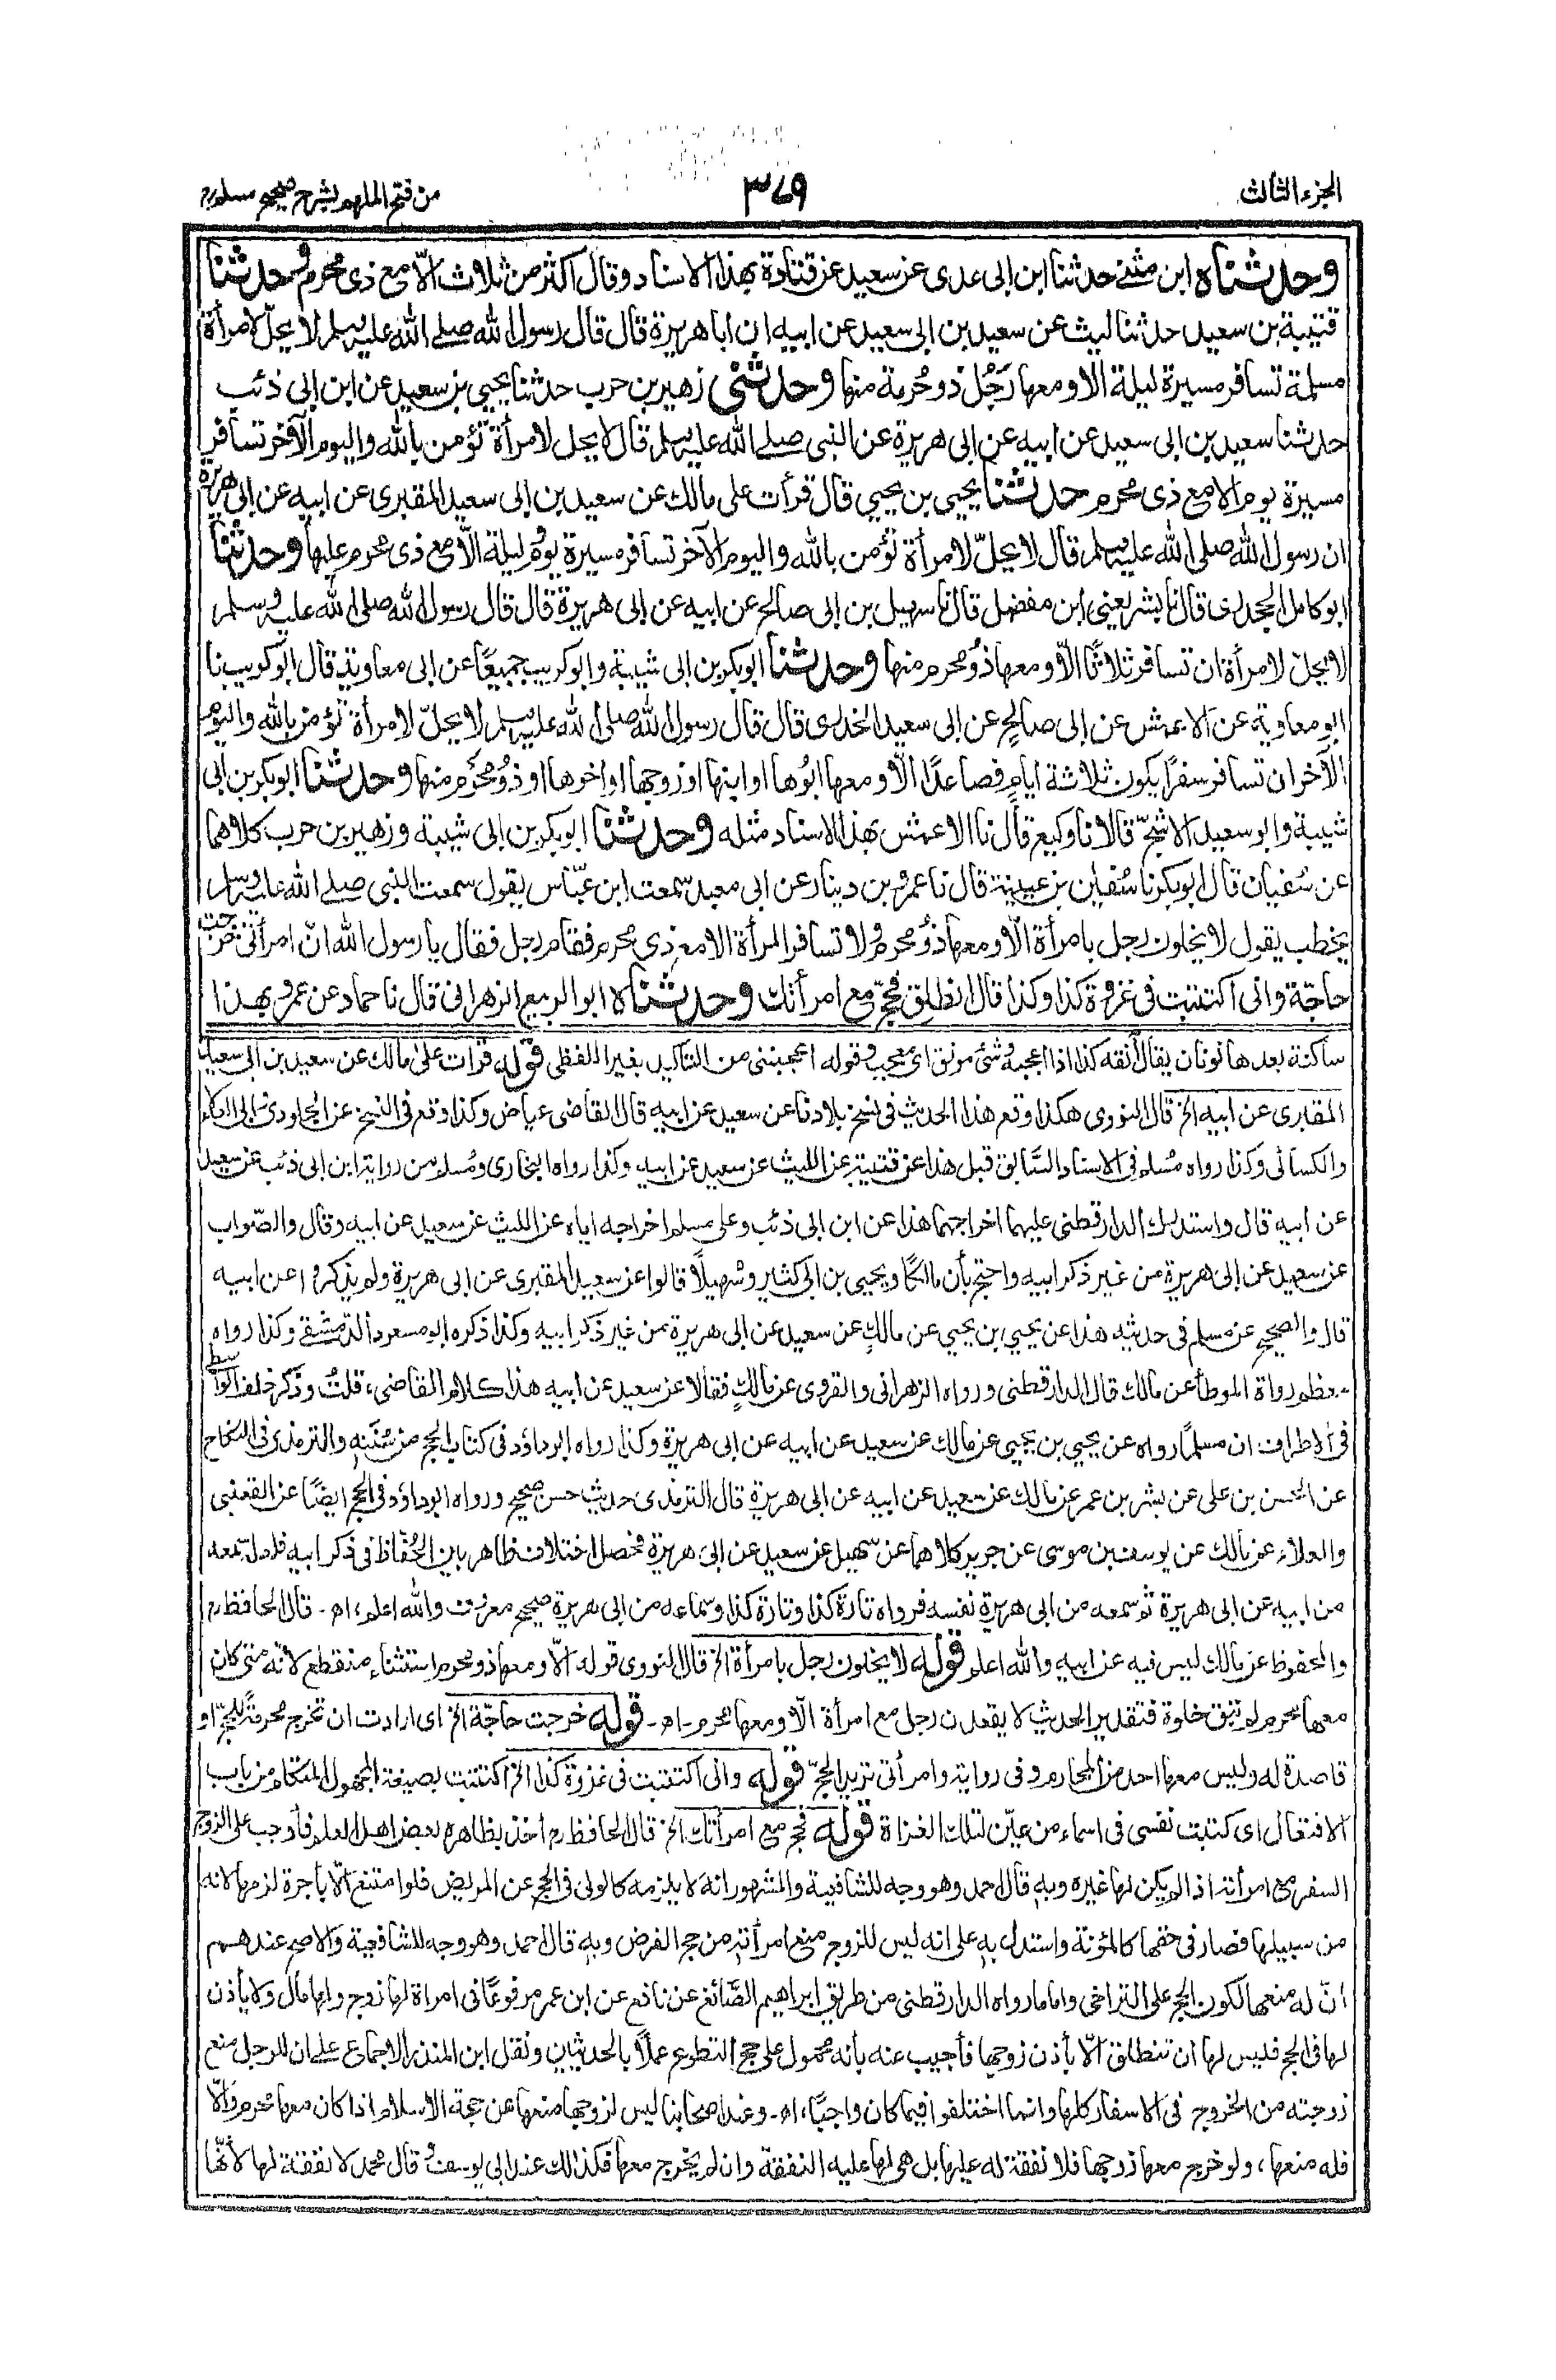 الجزء الثالث
٣٧٩
من فتح الملهم بشرح صحيح مسلم
وحدثناه ابن مثنى حدثنا ابن ابى عدى عن سعيد عن قتادة بهذا الاسناد وقال اكثر من ثلاث الّا مع ذى محرم وحدثنا
قتيبة بن سعيد حدثنا ليث عن سعيد بن ابى سعيد عن ابيه ان ابا هريرة قال قال رسول الله صلى الله عليه وسلم لا يحلّ لامرأة
مسلمة تسافر مسيرة ليلة الا ومعها رَجُل ذو حُرمة منها وحدثنى زهير بن حرب حدثنا يحيى بن سعيد عن ابن ابى ذئب
حدثنا سعيد بن ابى سعيد عن ابيه عن ابى هريرة عن النبى صلى الله عليه وسلم قال لا يحل لامرأة تؤمن بالله واليوم الآخر تسافر
مسيرة يوم الا مع ذى محرم حدثنا يحيى بن يحيى قال قرأت على مالك عن سعيد بن ابى سعيد المقبرى عن ابيه عن ابى هريرة
ان رسول الله صلى الله عليه وسلم قال لا يحلّ لامرأة تؤمن بالله واليوم الآخر تسافر مسيرة يوم وليلة الّا مع ذى محرم عليها وحدثنا
ابو كامل الجحدرى قال نا بشر يعنى ابن مفضل قال نا سهيل بن ابى صالح عن ابيه عن ابى هريرة قال قال رسول الله صلى الله عليه وسلم
لا يحلّ لامرأة ان تسافر ثلاثًا الّا ومعها ذو محرم منها وحدثنا ابوبكر بن ابى شيبة وابو كريب جميعًا عن ابى معاوية قال ابو كريب نا
ابو معاوية عن الاعمش عن ابى صالح عن ابى سعيد الخدرى قال قال رسول الله صلى الله عليه وسلم لا يحلّ لامرأة تؤمن بالله واليوم
الآخر ان تسافر سفرًا يكون ثلاثة ايام فصاعدًا الّا ومعها ابُوها او ابنها او زوجها او اخوها او ذو محرم منها وحدثنا ابوبكر بن ابى
شيبة وابو سعيد الاشجّ قالا نا وكيع قال نا الاعمش بهذا الاسناد مثله وحدثنا ابوبكر بن ابى شيبة وزهير بن حرب كلاهما
عن سُفيان قال ابوبكر نا سُفيان بن عيينة قال نا عمرو بن دينار عن ابى معبد سمعت ابن عبّاس يقول سمعت النبى صلى الله عليه وسلم
يخطب يقول لا يخلون رجل بامرأة الّا ومعها ذو محرم ولا تسافر المرأة الا مع ذى محرم فقام رجل فقال يا رسول الله انّ امرأتى خرجت
حاجّة وانى اكتتبت فى غزوة كذا وكذا قال انطلق فحجّ مع امرأتك وحدثناه ابو الربيع الزهرانى قال نا حماد عن عمرو بهذا
ساكنة بعدها نونان يقال أنقه كذا اذا اعجبه وشئ مونق اى معجب وقوله اعجبننى من التاكيد بغير اللفظى قوله قرات على مالك عن سعيد بن ابى سعيد
المقبرى عن ابيه الخ قال النووى هكذا وقع هذا الحديث فى نسخ بلادنا عن سعيد عن ابيه قال القاضى عياض وكذا وقع فى النسخ عن الجلودى وابى العلاء
والكسائى وكذا رواه مُسلم فى الاسناد السّابق قبل هذا عن قتيبة عن الليث عن سعيد عن ابيه، وكذا رواه البخارى ومُسلم من رواية ابن ابى ذئب عن سعيد
عن ابيه قال واستدرك الدارقطنى عليهما اخراجهما هذا عن ابن ابى ذئب وعلى مسلم اخراجه اياه عن الليث عن سعيد عن ابيه وقال والصّواب
عن سعيد عن ابى هريرة من غير ذكر ابيه واحتج بأن مالكًا ويحيى بن ابى كثير وسُهيلًا قالوا عن سعيد المقبرى عن ابى هريرة ولم يذكروا عن ابيه
قال والصحيح عن مسلم فى حديثه هذا عن يحيى بن يحيى عن مالك عن سعيد عن ابى هريرة من غير ذكر ابيه وكذا ذكره ابو مسعود الدّمشقى وكذا رواه
معظم رواة الموطأ عن مالك قال الدارقطنى ورواه الزهرانى والفروى عن مالك فقالا عن سعيد عن ابيه هذا كلام القاضى، قلتُ وذكر خلف الواسطى
فى الاطراف ان مسلمًا رواه عن يحيى بن يحيى عن مالك عن سعيد عن ابيه عن ابى هريرة وكذا رواه ابو داؤد فى كتاب الحج من سُننه والترمذى فى النكاح
عن الحسن بن على عن بشر بن عمر عن مالك عن سعيد عن ابيه عن ابى هريرة قال الترمذى حديث حسن صحيح ورواه ابو داؤد فى الحج ايضًا عن القعنبى
والعلاء عن مالك عن يوسف بن موسى عن جرير كلاهما عن سهيل عن سعيد عن ابى هريرة فحصل اختلاف ظاهر بين الحُفّاظ فى ذكر ابيه فلعله سمعه
من ابيه عن ابى هريرة ثم سمعه من ابى هريرة نفسه فرواه تارة كذا وتارة كذا وسماعه من ابى هريرة صحيح معروف والله اعلم، اھ۔ قال الحافظ رح
والمحفوظ عن مالك ليس فيه عن ابيه والله اعلم قوله لا يخلون رجل بامرأة الخ قال النووى قوله الّا ومعها ذو محرم استثناء منقطع لانّه متى كان
معها محرم لم تبق خلوة فتقدير الحديث لا يقعدن رجل مع امرأة الّا ومعها محرم۔ اھ۔ قوله خرجت حاجّة الخ اى ارادت ان تخرج محرمةً للحجّ او
قاصدة له وليس معها احد من المحارم وفى رواية وامرأتى تريد الحجّ قوله وانى اكتتبت فى غزوة كذا الخ اكتتبت بصيغة المجهول المتكلم من باب
الافتعال اى كتبت نفسى فى اسماء من عيّن لتلك الغزاة قوله فحج مع امرأتك الخ قال الحافظ رح أخذ بظاهره بعض اهل العلم فأوجب على الزوج
السفر مع امرأته اذا لم يكن لها غيره وبه قال احمد وهو وجه للشافعية والمشهور انه لا يلزمه كالولى فى الحج عن المريض فلو امتنع الّا بأجرة لزمها لانه
من سبيلها فصار فى حقها كالمؤنة واستدل به على انه ليس للزوج منع امرأته من حج الفرض وبه قال احمد وهو وجه للشافعية والاصح عندهم
أنّ له منعها لكون الحج على التراخى واما ما رواه الدارقطنى من طريق ابراهيم الصّائغ عن نافع عن ابن عمر مرفوعًا فى امراة لها زوج ولها مال ولا يأذن
لها فى الحج فليس لها ان تنطلق الّا بأذن زوجها فأجيب عنه بأنه محمول على حج التطوع عملًا بالحديثين ونقل ابن المنذر الاجماع على ان للرجل منع
زوجته من الخروج فى الاسفار كلها وانما اختلفوا فيما كان واجبًا، اھ۔ وعند اصحابنا ليس لزوجها منعها عن حجة الاسلام اذا كان معها محرم والّا
فله منعها، ولو خرج معها زوجها فلا نفقة له عليها بل هى لها عليه النفقة وان لم يخرج معها فكذلك عند ابى يوسف وقال محمد لا نفقة لها لأنّها